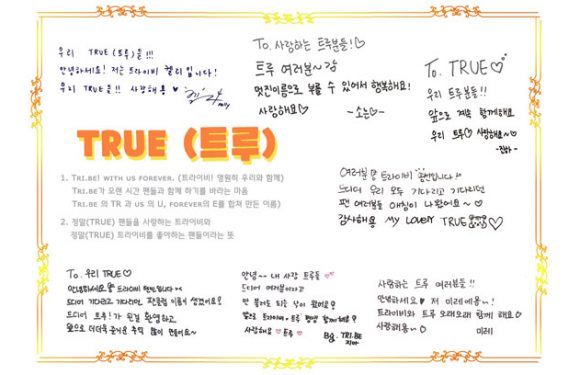 우리 TRUE (트루)들!!!
안녕하세요! 저는 트라이비 켈리입니다!
우리 TRUE들!! 사랑해용 ♥
To. 사랑하는 트루분들!♡
트루 여러분~
멋진이름으로 부를 수 있어서 행복해요!
사랑해요♡ -소은♡-
To. TRUE♡
우리 트루분들!!
앞으로 계속 함께해요
우리 트루♡ 사랑해요~
-진하-
TRUE (트루)
1. TRI.BE! WITH US FOREVER. (트라이비! 영원히 우리와 함께)
TRI.BE가 오랜 시간 팬들과 함께 하기를 바라는 마음
TRI.BE 의 TR 과 US 의 U, FOREVER의 E를 합쳐 만든 이름)
2. 정말(TRUE) 팬들을 사랑하는 트라이비와
정말(TRUE) 트라이비를 좋아하는 팬들이라는 뜻
여러분 트라이비 현빈입니다
드디어 우리 모두 기다리고 기다리던
팬 여러분들 애칭이 나왔어요~♡
감사해용 MY LOVELY TRUE ♡
To. 우리 TRUE♡
안녕하세요 트라이비 입니다
드디어 기다리고 기다리던 팬클럽 이름이 생겼어요!
드디어 트루! 가 된걸 환영하고
앞으로 더더욱 즐거운 추억 많이 만들어요~
안녕~~ 내 사랑 트루들 ♥♥
드디어 여러분이라고
안 불러도 되는 날이 왔어요
앞으로 트라이비 트루 평생 함께해요
사랑해요 트루 By. TRI.BE
지아
사랑하는 트루 여러분들!!
안녕하세요♡ 저 미레예용~!
트라이비와 트루 오래오래 함께 해요♡
사랑해용~♡ 미레